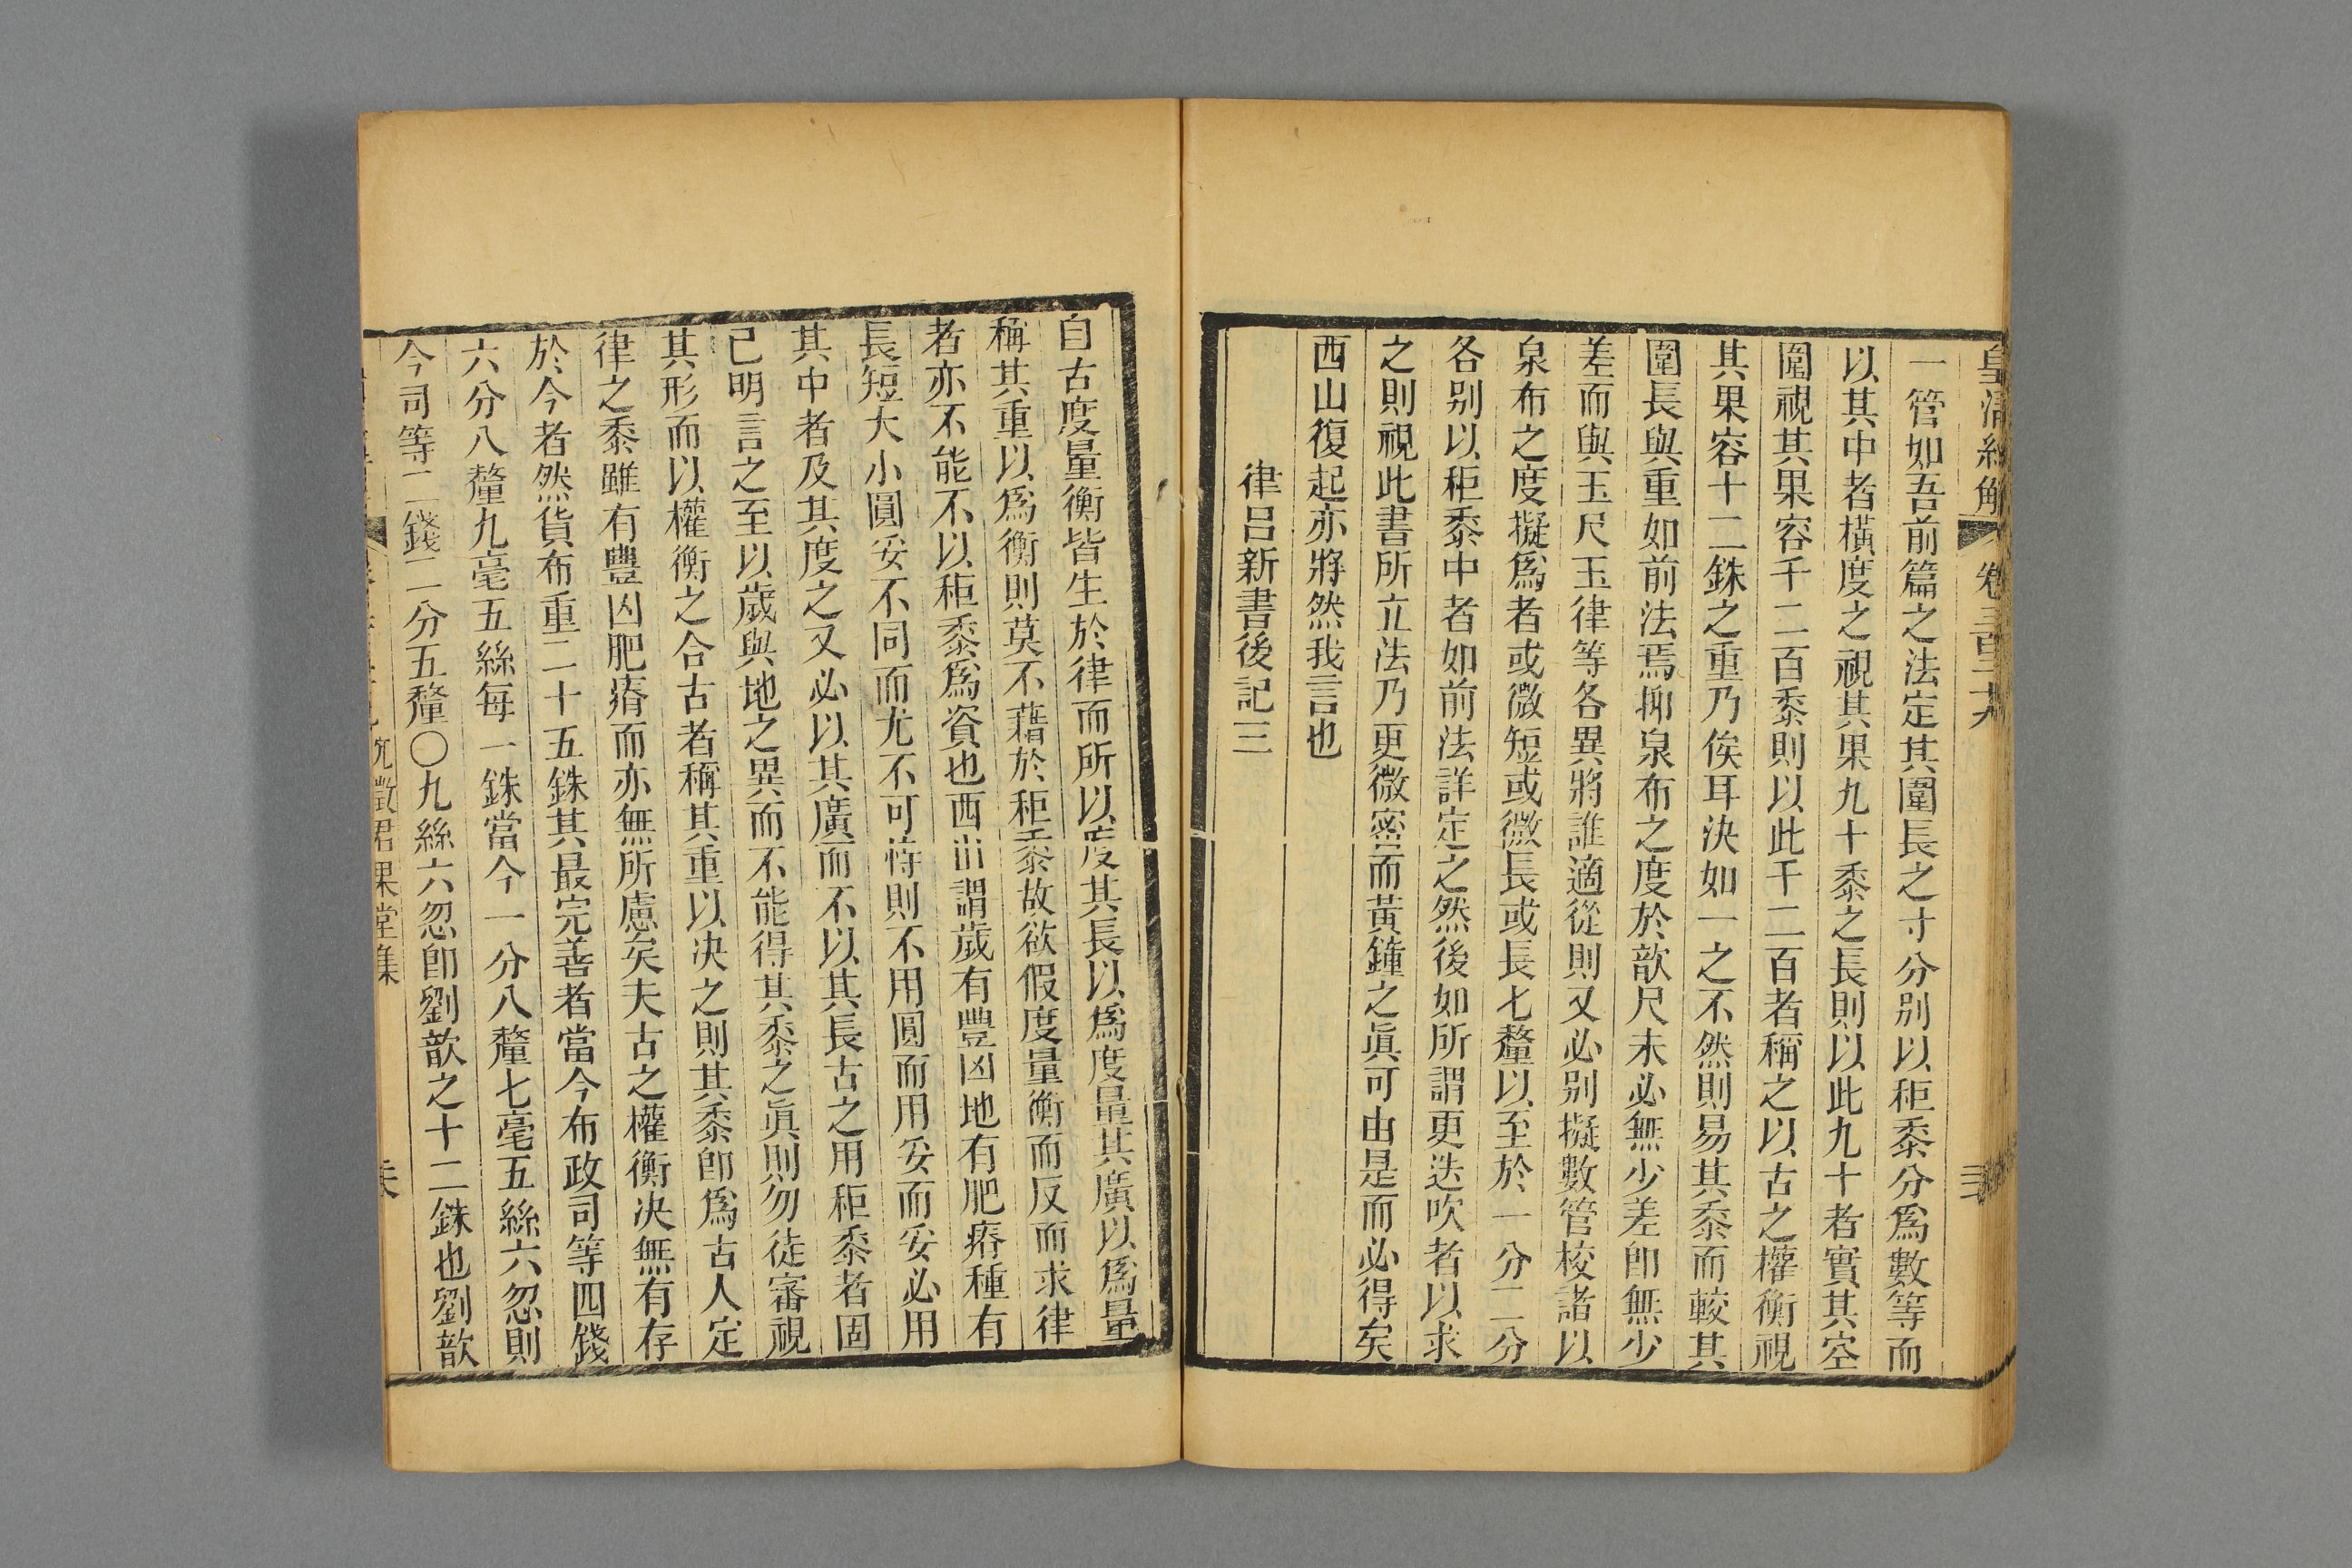 皇清經解 卷三百二十九
一管如吾前篇之法定其圍長之寸分别以秬黍分爲數等而
以其中者橫度之視其果九十黍之長則以此九十者實其空
圍視其果容千二百黍則以此千二百者稱之以古之權衡視
其果容十二銖之重乃俟耳決如一之不然則易其黍而較其
圍長與重如前法焉抑泉布之度於歆尺未必無少差卽無少
差而與玉尺玉律等各異將誰適從則又必别擬數管校諸以
泉布之度擬爲者或微短或微長或長七釐以至於一分二分
各别以秬黍中者如前法詳定之然後如所謂更迭吹者以求
之則視此書所立法乃更微密而黃鐘之眞可由是而必得矣
西山復起亦將然我言也
律呂新書後記三
自古度量衡皆生於律而所以度其長以爲度量其廣以爲量
稱其重以爲衡則莫不藉於秬黍故欲假度量衡而反而求律
者亦不能不以秬黍爲資也西山謂歲有豐凶地有肥瘠種有
長短大小圓妥不同而尤不可恃則不用圓而用妥而妥必用
其中者及其度之又必以其廣而不以其長古之用秬黍者固
已明言之至以歲與地之異而不能得其黍之眞則勿徒審視
其形而以權衡之合古者稱其重以决之則其黍卽爲古人定
律之黍雖有豐凶肥瘠而亦無所慮矣夫古之權衡決無有存
於今者然貨布重二十五銖其最完善者當今布政司等四錢
六分八釐九毫五絲每一銖當今一分八釐七毫五絲六忽則
今司等二錢二分五釐〇九絲六忽卽劉歆之十二銖也劉歆
沈徵君果堂集